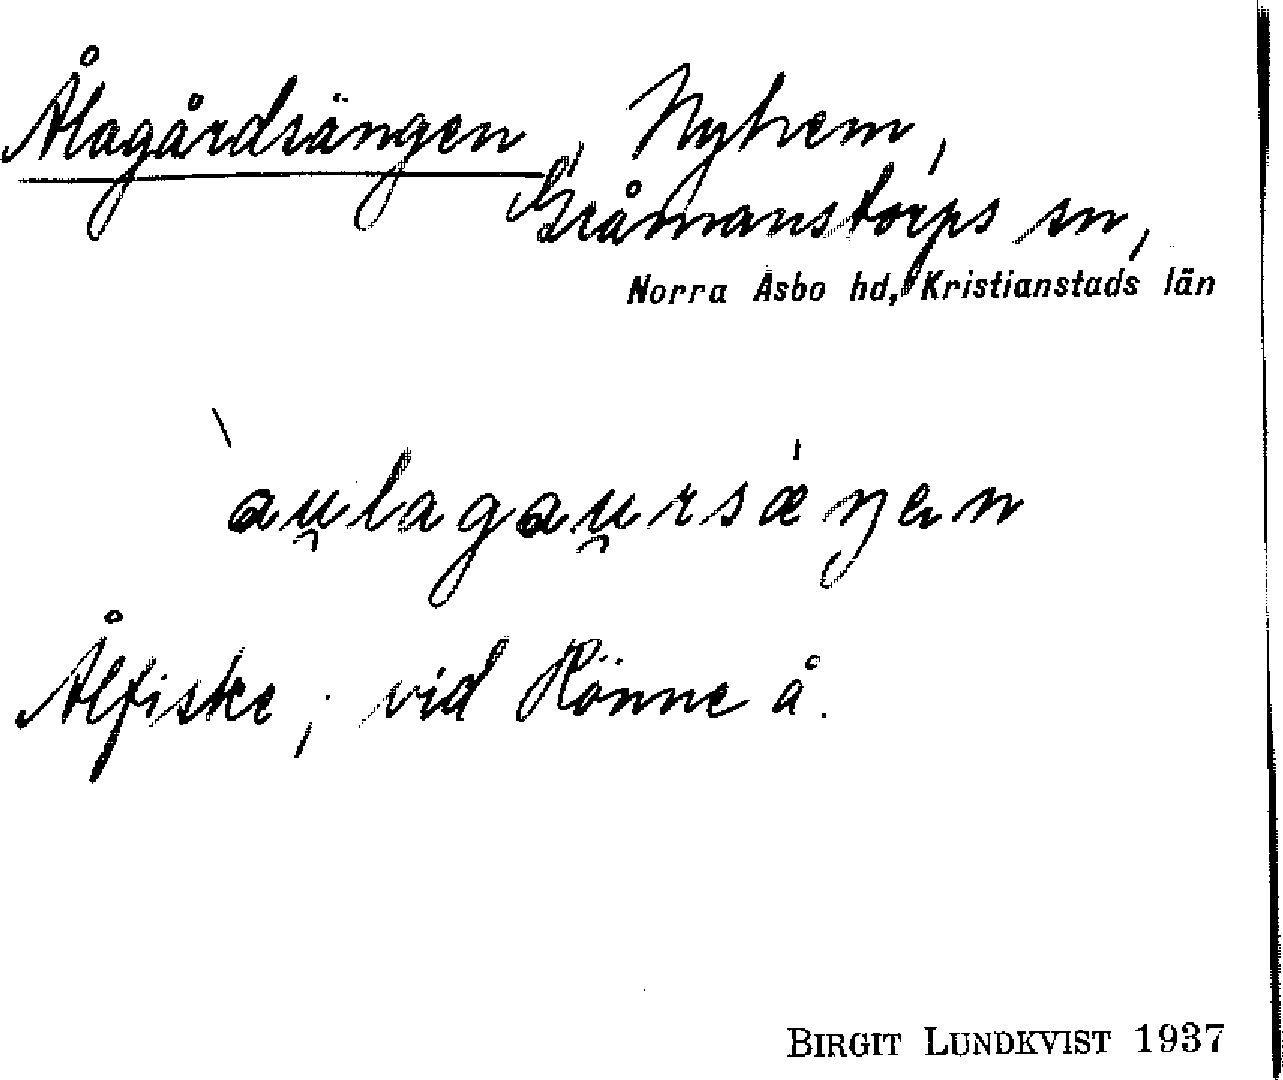 Ålagårdsängen, Nyhem,
Gråmanstorps sn,
Norra Åsbo hd, Kristianstads län
`au̯lagau̯rsˈæŋən
Ålfiske; vid Rönne å.
BIRGIT LUNDKVIST 1937